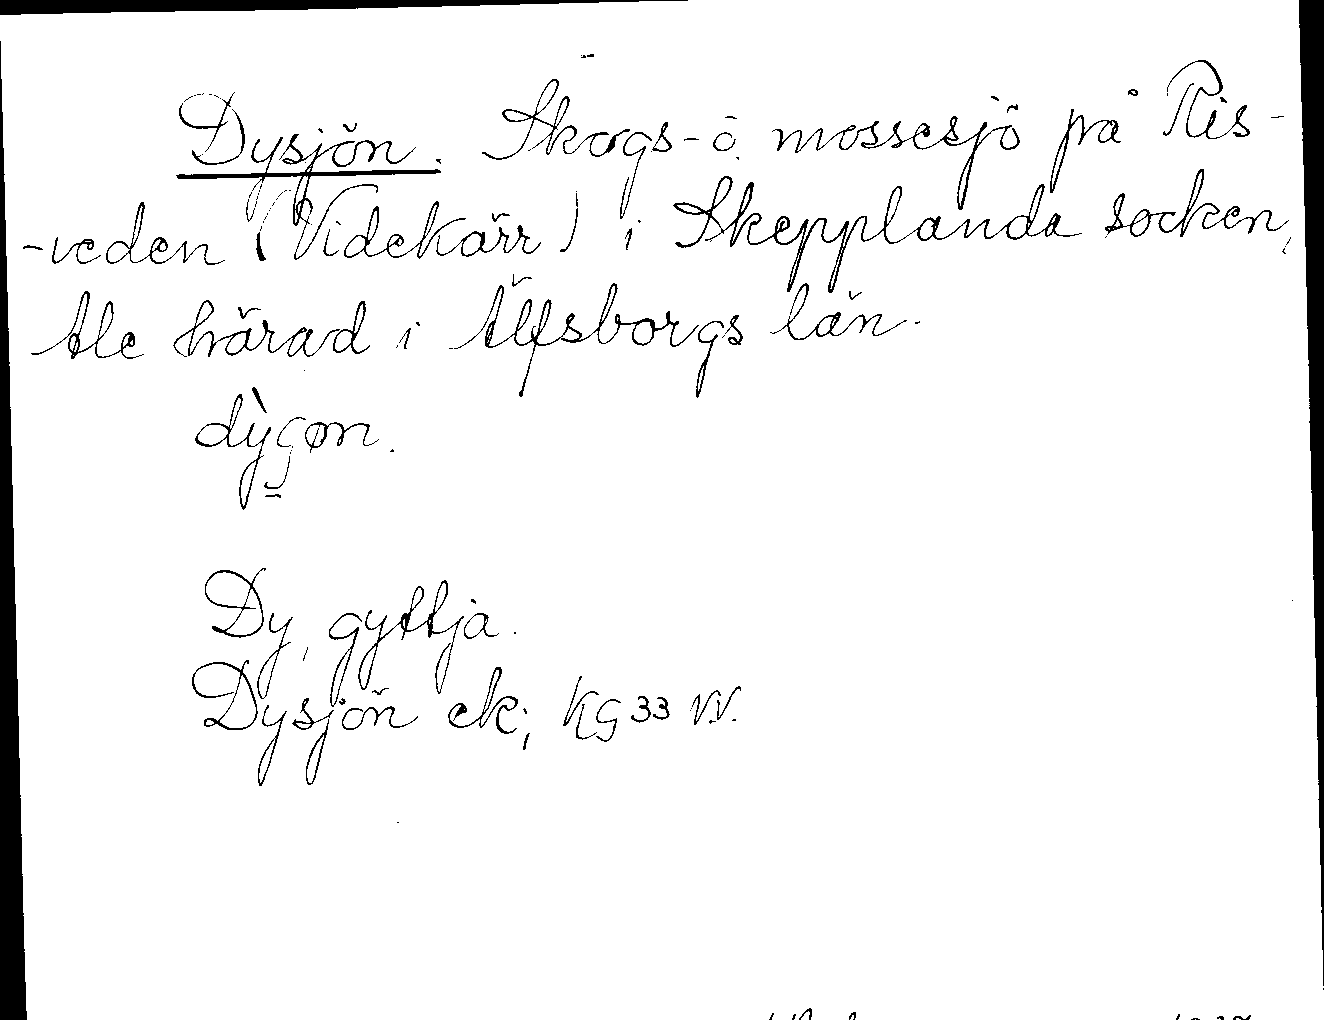 Dysjön. Skogs-o. mossesjö på Ris-
-veden (Videkärr) i Skepplanda socken,
Ale härad i Älfsborgs län.
dỳʃøn.
Dy, gyttja.
Dysjön ek; KG 33 VV.